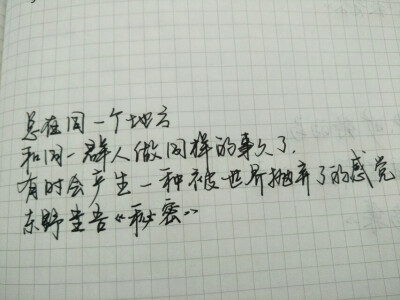 总在同一个地方
和同一群人做同样的事久了,
有时会产生一种被世界抛弃了的感觉
东野圭吾《秘密》